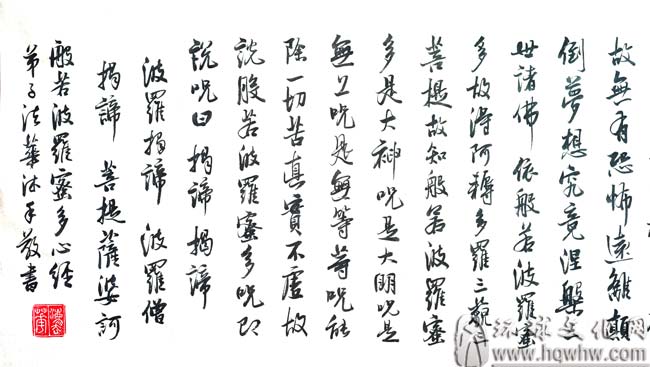 故無有恐怖遠離顛
倒夢想究竟涅槃三
世諸佛依般若波羅蜜
多故得阿耨多羅三藐
菩提故知般若波羅蜜
多是大神呪是大明呪是
無上呪是無等等呪能
除一切苦真實不虛故
說般若波羅蜜多呪即
說呪曰揭諦揭諦
波羅揭諦 波羅僧
揭諦 菩提薩婆訶
般若波羅蜜多心經
弟子法華沐手敬書
环球文化网
www.hqwhw.com